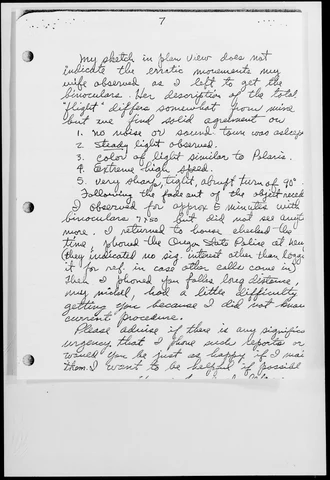 7
My sketch in plan view does not
indicate the erratic movements my
wife observed as I left to get the
binoculars. Her description of the total
"flight" differs somewhat from mine
but we find solid agreement on
1. no noise or sound. town was asleep
2. Steady light observed.
3. color of light similar to Polaris.
4. Extreme high speed.
5. very sharp, tight, abrupt turn of 90°
Following the fade out of the object
I observed for approx 5 minutes with
binoculars 7x50 but did not see any
more. I returned to house checked the
time, phoned the Oregon State Police at
(they indicated no sig. interest other than
it for ref. in case other calls came in)
Then I phoned you false long distance,
had a little difficulty
getting you because I did not know
current procedure.
Please advise if there is any
urgency that I phone such reports or
would you be just as happy if I
them. I want to be helpful if possible